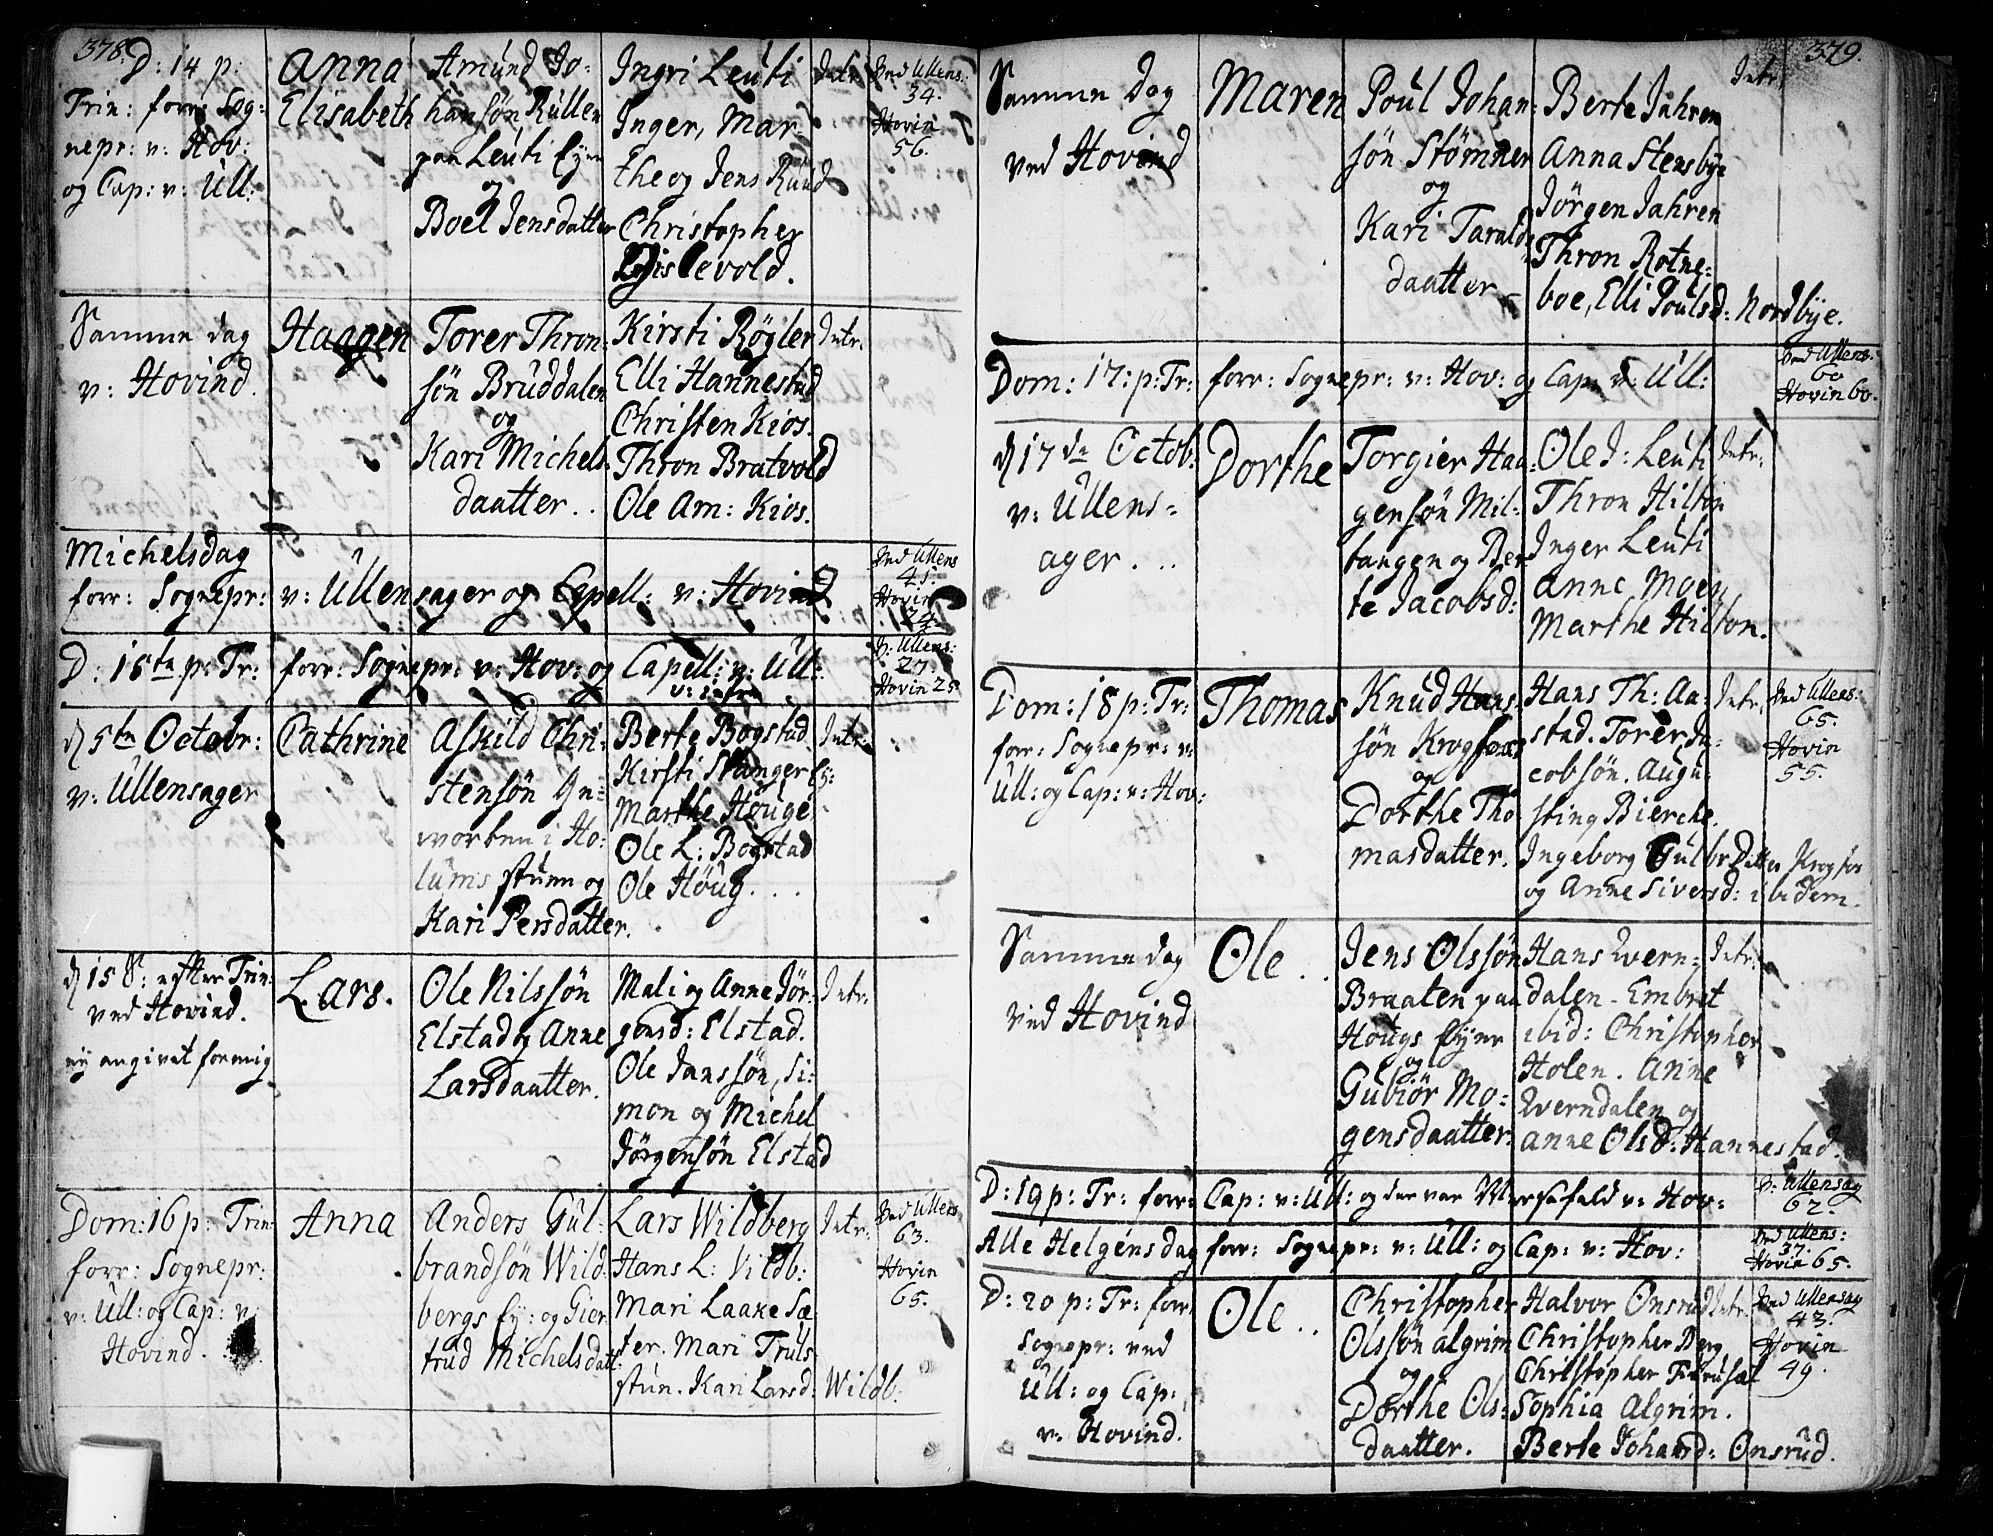 378.
D: 14 p:
Trin: forr: Sog:
nepr: v: Hov:
og Cap: v: Ull:
Anna
Elisabeth
Amund Jo:
hansøn Rullen
paa Leuti Eyen
og
Boel Jensdatter
Ingri Leuti
Inger, Mar:
the og Jens Ruud
Christopher
Intr:
Ved Ullens:
34.
Hovin
56.
Samme dag
v: Hovind.
Haagen
Torer Thron:
søn Bruddalen
og
Kari Michels
daatter..
Kirsti Røgler
Elli Hannestad
Christen Kios.
Thron Bratvold
Ole Am: Kios.
Intr:
Michelsdag
forr: Sognepr: v: Ullensager og Capell: v: Hovind
Ved Ullens
45.
Hovin
24.
D: 15te p: Tr: forr: Sognepr: v: Hov: og Capell: v: Ull:
v: Ullens:
27.
Hovin 25.
d 5te Octobr:
v: Ullensager
Cathrine
Askild Chri:
stensøn
i Ho:
lums stuen og
Kari Persdatter.
Berte Bogstad
Kirsti Stanger Ey:
Marthe Houge
Ole L: Bogstad
Ole Houg...
Intr:
d 15 S: efter Trin:
ved Hovind.
ey angivet for mig
Lars.
Ole Nilssøn
Elstad og Anne
Larsdaatter.
Mali og Anne Jør:
gensd: Elstad.
Ole Janssøn, Si:
mon og Michel
Jørgensøn Elstad
Intr:
Dom: 16 p: Trin:
forr: Sognepr:
v: Ull: og Cap: v:
Hovind.
Anna
Anders Gul:
brandsøn Wild:
bergs Ey: og Gier
trud Michelsdatt:
Lars Wildberg
Hans L: Vildb:
Mari Laake Sæ
ter. Mari Truls
stun. Kari Larsd: Wildb:
Intr:
Ved Ullens
63.
Hovin
65.
379.
Samme Dag
ved Hovind
Maren
Poul Johan:
søn Stømner
og
Kari Taralds
daatter
Berte Jahren
Anna Stensbye
Jørgen Jahren
Thron Rotne:
boe, Elli Poulsd: Nordbye.
Intr:
Dom: 17: p: Tr: forr: Sognepr: v: Hov: og Cap: v: Ull:
Ved Ullens:
60
Hovin 60.
d 17de Octob:
v: Ullens=
ager...
Dorthe
Torgier Haa:
gensøn Mil:
tangen og Ber
te Jacobsd:
Ole J: Leuti
Thron Hilton
Inger Leuti
Anne Moen
Marthe Hilton.
Intr:
Dom: 18 p: Tr:
for: Sognepr: v:
Ull: og Cap: v: Hov:
Thomas
Knud Hans:
søn Krogfoss
og
Dorthe Tho
masdatter.
Hans Th: Aa:
stad. Torer Ja:
cobsøn. Augu:
sting Bierche.
Ingeborg Gulbr Datter Krogfos
og Anne Siversd: ibidem.
Intr:
Ved Ullens:
65.
Hovin
55.
Samme dag
ved Hovind
Ole..
Jens Olssøn
Braaten paa
Hougs Eyer
og
Gubiør Mo:
gensdaatter:
Hans Qvern:
dalen. Embret
ibid: Christopher
Holen. Anne
Qverndalen og
Anne Olsd: Hannestad.
Intr:
D: 19 p: Tr: forr: Cap: v: Ull: og der var Messefald v: Hov:
v: Ullensag
62.
Alle Helgens dag forr: Sognepr: v: Ull: og Cap: v: Hov:
Ved Ullens:
37.
Hovin 65.
D: 20 p: Tr: forr:
Sognepr: ved
Ull: og Cap:
v: Hovind.
Ole..
Christopher
Olssøn Algrim
og
Dorthe Ols:
daatter.
Halvor Onsrud
Christopher Berg
Christopher
Sophia Algrim.
Berte Johansd: Onsrud.
Intr:
Ved Ullensag
43.
Hovin
49.